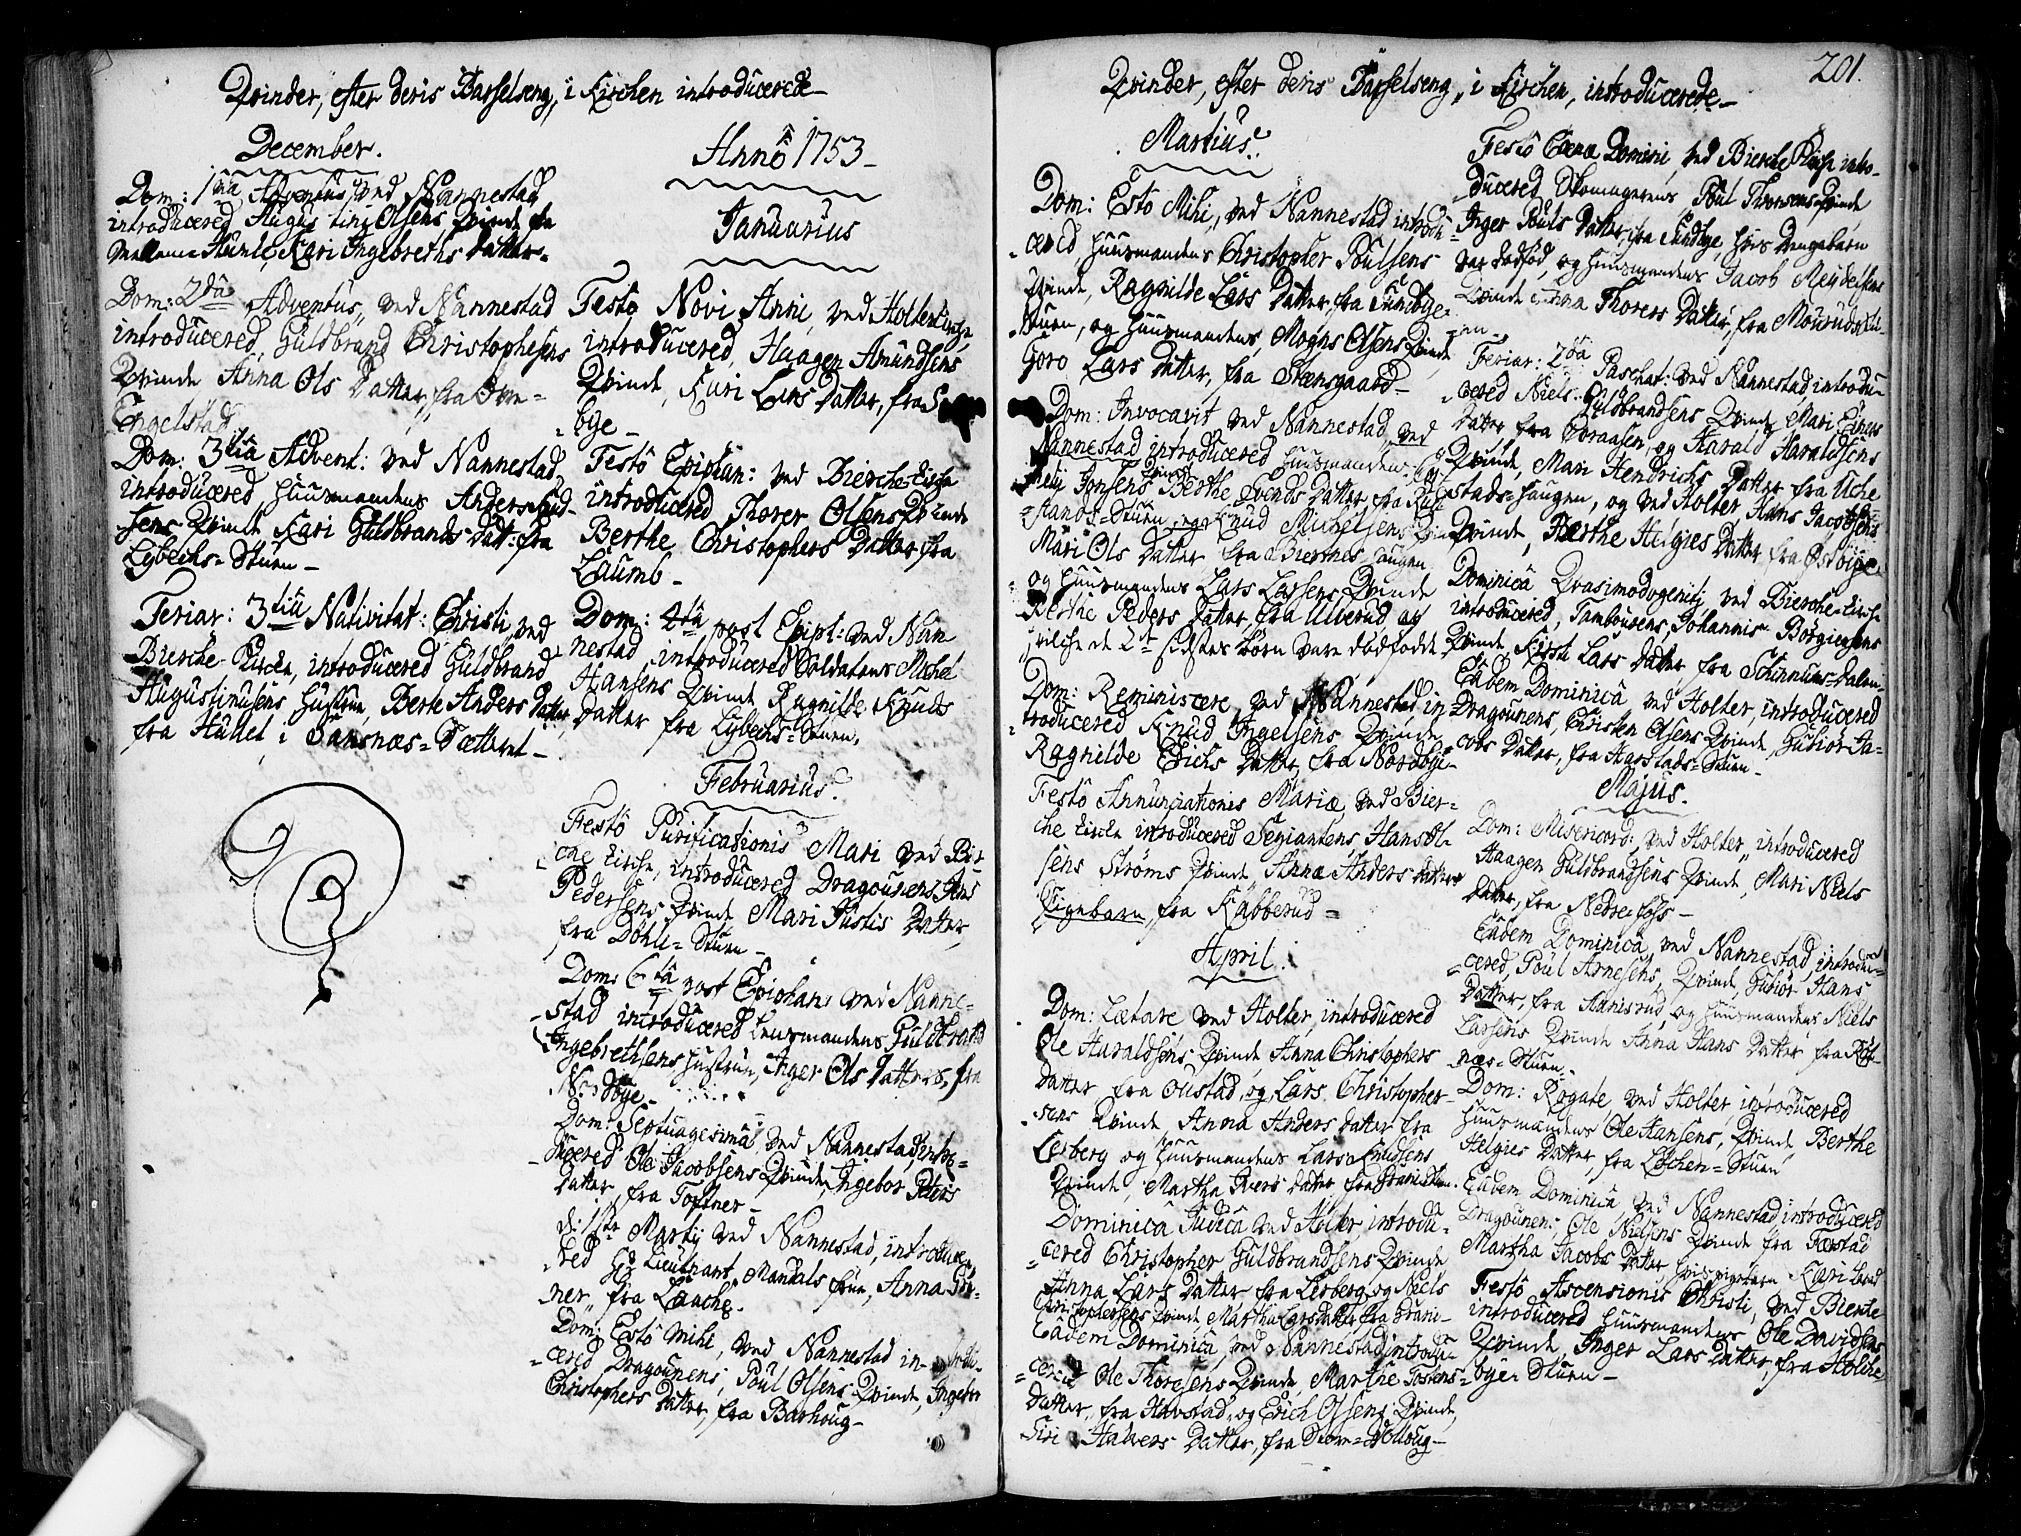 Qvinder, efter deris Barselseng, i Kirchen introducerede
December.
Dom: 1ma Adventus, ved Nannestad
introducered Olsens Qvinde fra
Kari Ingebreths Datter
Dom: 2da Adventus, ved Nannestad
introducered, Güldbrand Christophersens
Qvinde Anna Ols Datter, fra
Engelstad
Dom: 3tia Advent: ved Nannestad,
introducered, huusmandens Anders Knud-
sens Qvinde Kari Güldbrands Datt: fra
Lybechs-Stuen
Feriar: 3tia Nativitat: Christi, ved
Bierche Kirche, introducered Güldbrand
Augustinusens hustrue, Berte Anders Datter,
fra Hullet i
Annô 1753
Januarius
Festô Novi Anni, ved Holter Kirche,
introducered, Haagen Amundsens
Qvinde, Kari Lars Datter, fra
bye
Festô Epiphan: ved Bierche-Kirche
introducered Thorer Olsens Qvinde
Berthe Christophers Datter fra
Laumb
Dom: 4ta post Epiph: ved Nan
nestad, introducered Soldatens Michel
Hansens Qvinde Ragnilde Knuds
Datter fra Lybechs-Stuen,
Februarius.
Festô Purificationis Mari ved Bier-
che Kirche, introducered Dragounens Jens
Pedersens Qvinde Mari Justis Datter,
fra Döhli-Stuen
Dom: 6ta post Epiphan: ved Nanne-
stad introducered Lensmandens Guldbrand
Ingebrethsens hustrue, Inger Ols Datter, fra
Nordbye
Dom: Septuagesima, ved Nannestad, intro-
ducered Ole Jacobsens Qvinde, Ingebor Peders
Datter, fra Toftner
d: 1ste Martij ved Nannestad, introduce-
red Hr Lieutnant Mandals frue, Anna
ner, fra Laache.
Dom: Esto mihi, ved Nannestad introdu-
cered Dragounens, Poul Olsens Qvinde, Ingebor
Christophers Datter, fra Barhoug
201.
Qvinder, efter deris Barselseng, i Kirchen, introducerede
Martius.
Dom: Esto Mihi, ved Nannestad introdu-
cered, huusmandens Christopher Poulsens
Qvinde, Ragnilde Lars Datter, fra Sundbye-
Stuen, og huusmandens, Mogns Olsens Qvinde,
Goro Lars Datter, fra Steensgaard
Dom: Invocavit ved Nannestad, ved
Nannestad introducered huusmandens
Jonsens Qvinde Berthe Svends Datter fra
stands-Stuen, og Knud Michelsens Qvinde
Mari Ols Datter fra Bierthes haugen
og huusmandens Lars Larsens Qvinde
Berthe Peders Datter fra Ullerud af
hvilche de 2de sidstes børn vare dødfødde
Dom: Reminiscere, ved Nannestad in-
troducered Knud Ingelsens Qvinde,
Ragnilde Erichs Datter, fra Nordbye
Festô Annunciationis Mariæ, ved Bier-
che Kirche introducered Segiantens Hans Ol-
sens Ströms Qvinde, Anna Anders Datters
Pigebarn, fra Kabberud
April.
Dom: Lætare ved Holter, introducered
Ole Haraldsens Qvinde Anna Christophers
Datter fra Oustad, og Lars Christopher-
sens Qvinde, Anna Anders Datter fra
Lerberg og huusmandens Lars Knudsens
Qvinde, Martha Ivers Datter fra
Dominicâ Judicâ ved Holter, introdu-
cered Christopher Güldbrandsens Qvinde
Anna Lars Datter fra Lerberg og Niels
Christophersens Qvinde, Martha Lars Datter fra
Eâdem Dominicâ, ved Nannestad introdu-
cered Ole Thoresens Qvinde, Marthe Tostens
Datter, fra Havstad, og Erich Olsens Qvinde,
Siri Halvers Datter, fra Stor-Holloug
Festô Coenæ Domini, ved Bierche Kirche intro-
ducered Skomagerens Poul Thorsens Qvinde
Inger Pouls Datter, fra Sundbye, hvis Drengebarn
var dødfød, og huusmandens Jacob
Qvinde Anna Thorers Datter, fra
en
Feriar: 2da Paschat: ved Nannestad introdu-
cered Niels Güldbrandsens Qvinde Mari Einers
Datter, fra Aaraasen, og Harald Haraldsens
Qvinde, Mari Hendrichs Datter fra Uche
stads-Haugen, og ved Holter Hans Jacobsens
Qvinde, Berthe Helgies Datter, fra Østbye
Dominicâ Qvasimodogenitj ved Bierche-Kirche
introducered, Tambourens, Johannis Børgiesens
Qvinde, Kirsti Lars Datter, fra Schinnnes-Dalen
Eâdem Dominicâ, ved Holter, introducered
Dragounens, Christen Olsens Qvinde, Gubiör Ja-
cobs Datter, fra Harstads-Stuen
Majus.
Dom: Misericord: ved Holter, introducered
Haagen Güldbrandsens Qvinde, Mari Niels
Datter, fra Nedre Houg
Eâdem Dominicâ, ved Nannestad introdu-
cered, Poul Arnesens, Qvinde, Gubiör Hans
Datter, fra Hanisrud, og huusmandens Niels
Larsens Qvinde Anna Hans Datter fra
næs-Stuen,
Dom: Rogate ved Holter, introducered
huusmandens Ole Hansens, Qvinde, Berthe
Helgies Datter, fra Löchen-Stuen
Eâdem Dominicâ ved Nannestad introducered
Dragounens Ole Nielsens Qvinde fra
Martha Jacobs Datter hvis pigebarn Kari
Festô Ascensionis Christi, ved Bierche
introducered huusmandens Ole Davidsens
Qvinde, Inger Lars Datter, fra Holche-
bye Stuen